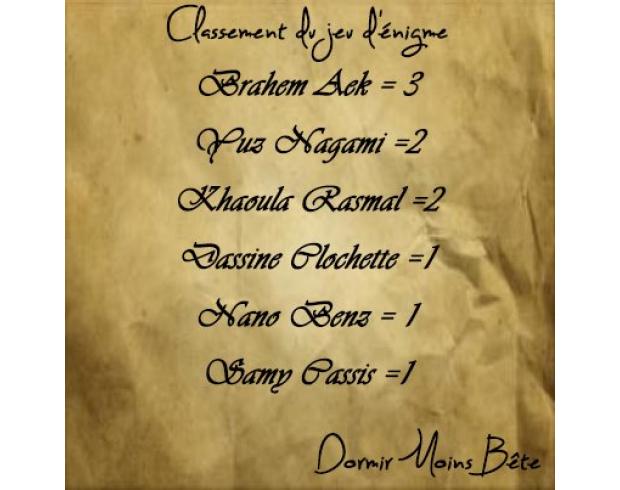 Classement du jeu d'énigme
Brahem Aek = 3
Yuz Nagami =2
Khaoula Rasmal =2
Dassine Clochette =1
Nano Benz = 1
Samy Cassis =1
Dormir Moins Bête